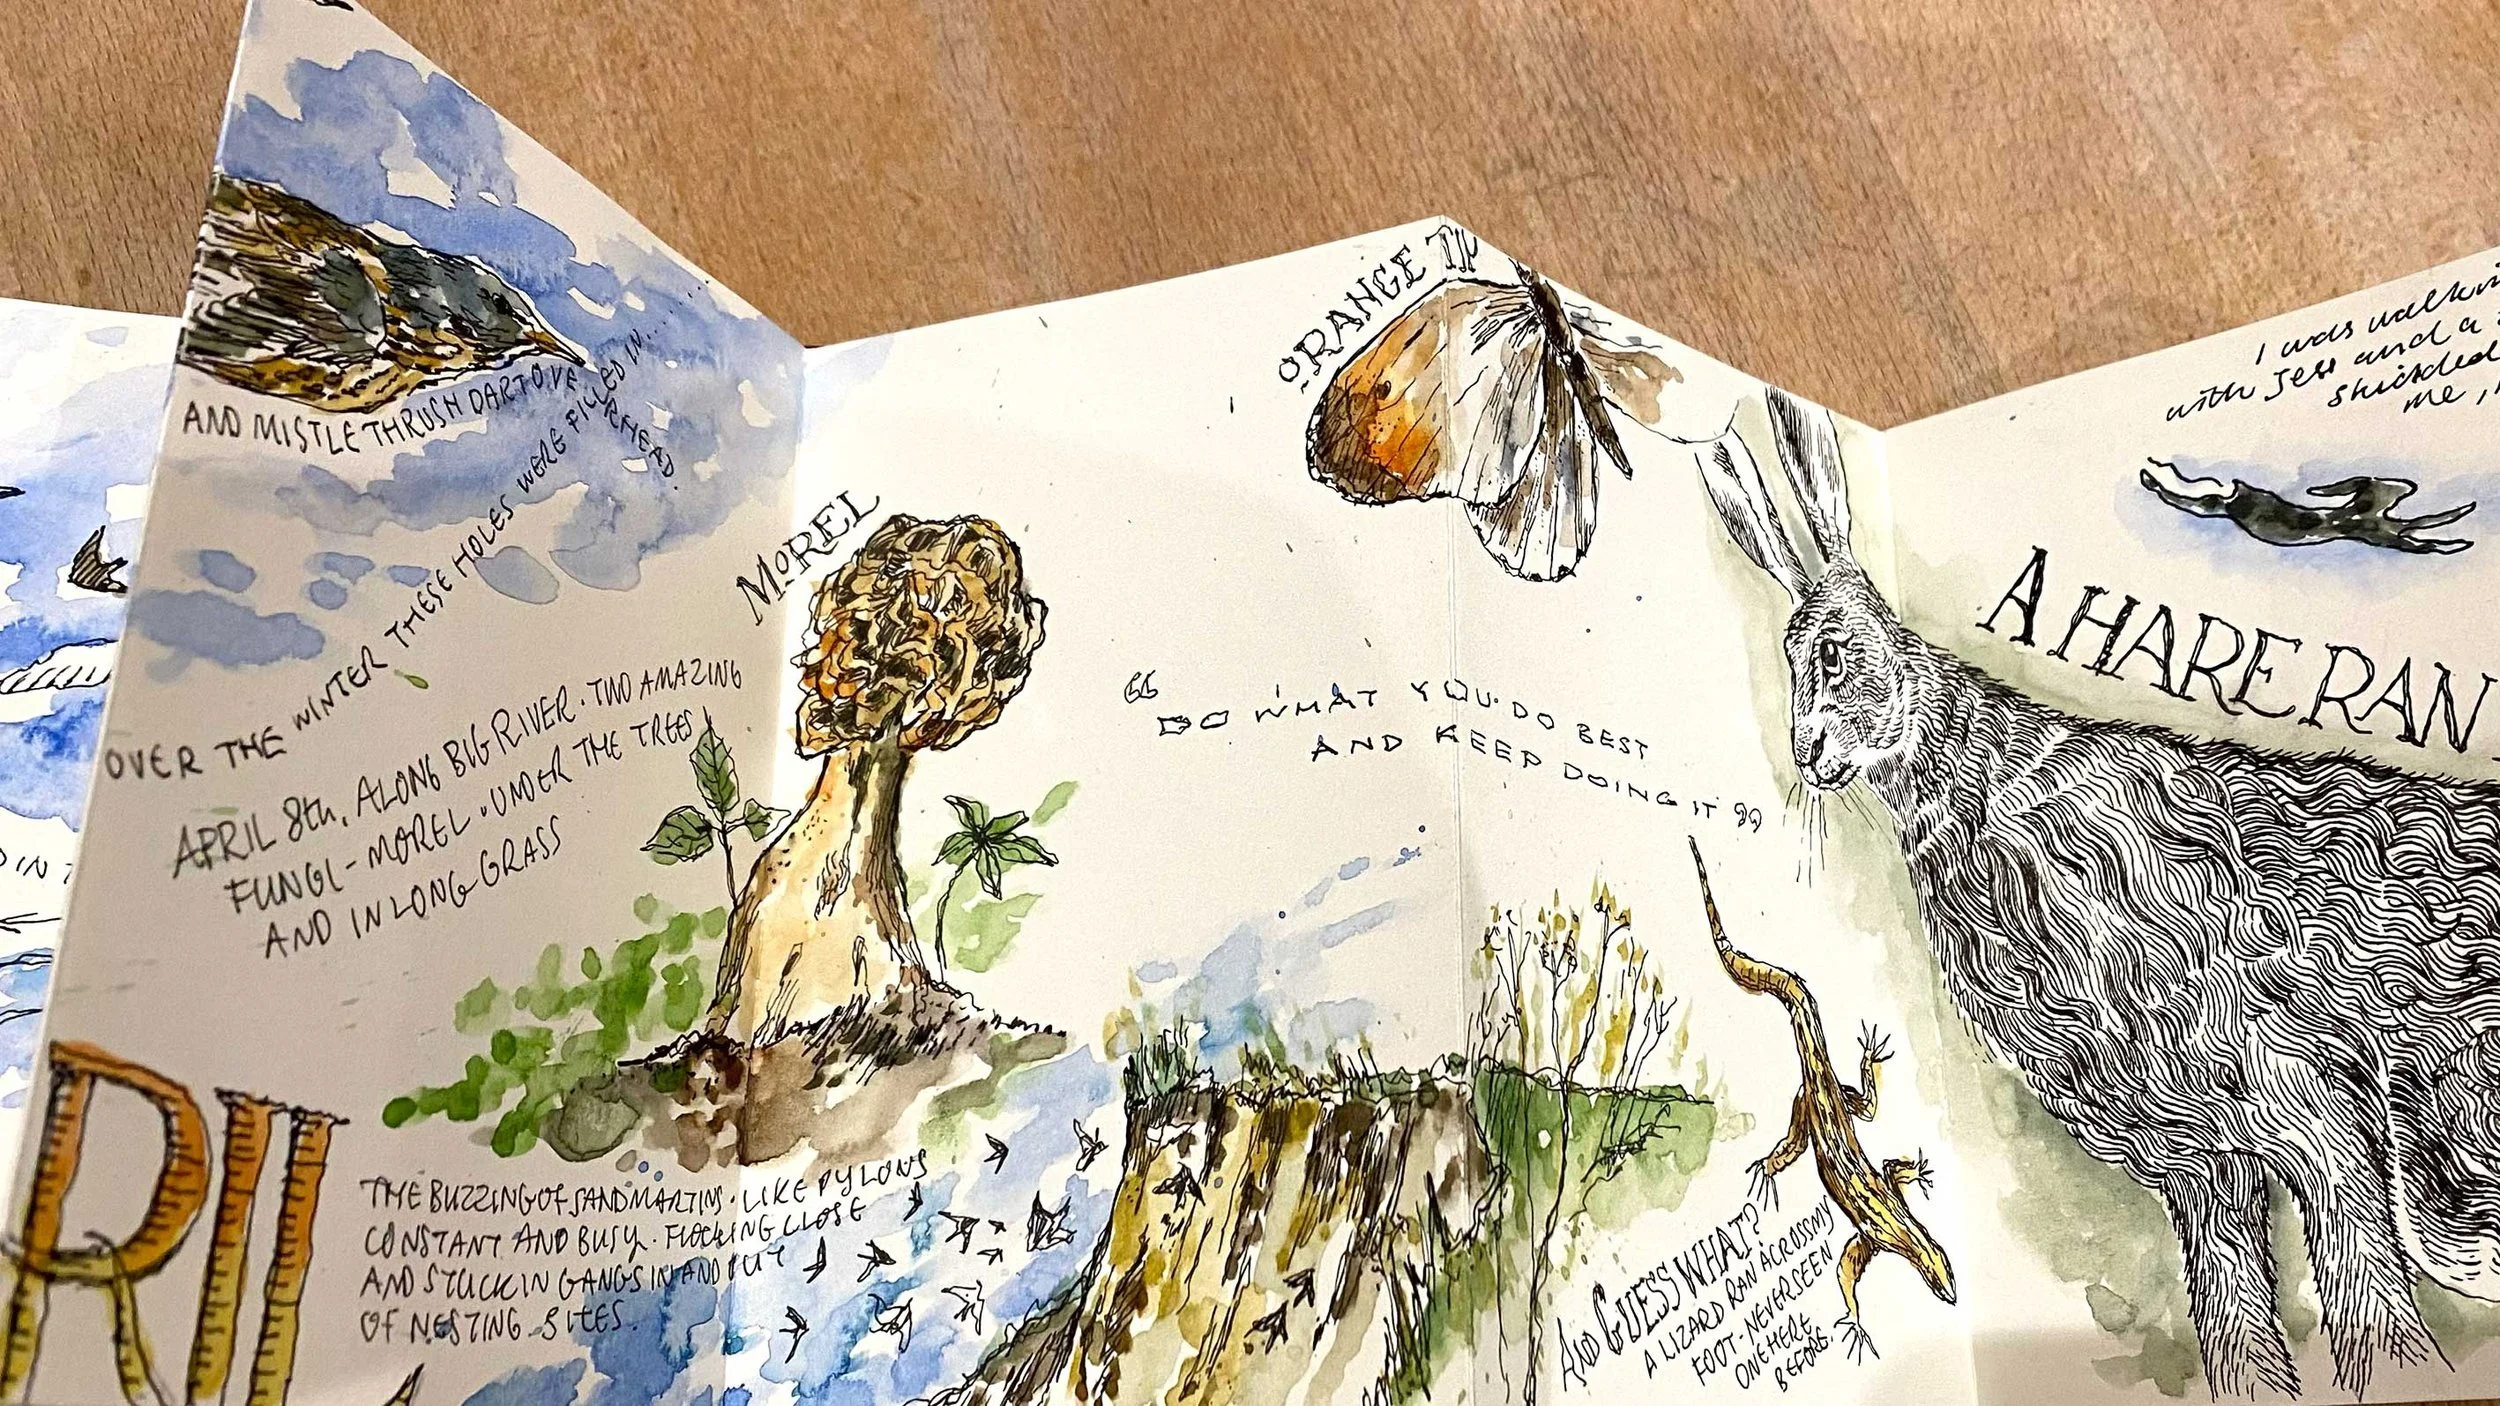 AND MISTLE THRUSH DART OVERHEAD.
OVER THE WINTER THESE HOLES WERE FILLED IN......
APRIL 8th, ALONG BIG RIVER. TWO AMAZING
FUNGI-MOREL. UNDER THE TREES!
AND IN LONG GRASS
RIL
THE BUZZING OF SANDMARTINS. LIKE PYLONS
CONSTANT AND BUSY. FLOCKING CLOSE
AND STUCK IN GANGS IN AND OUT
OF NESTING SITES.
MOREL
ORANGE TIP
"DO WHAT YOU DO BEST
AND KEEP DOING IT"
AND GUESS WHAT?
A LIZARD RAN ACROSS MY
FOOT-NEVER SEEN
ONE HERE
BEFORE.
I was walkin
with Jess and a
skidded
me,
A HARE RAN